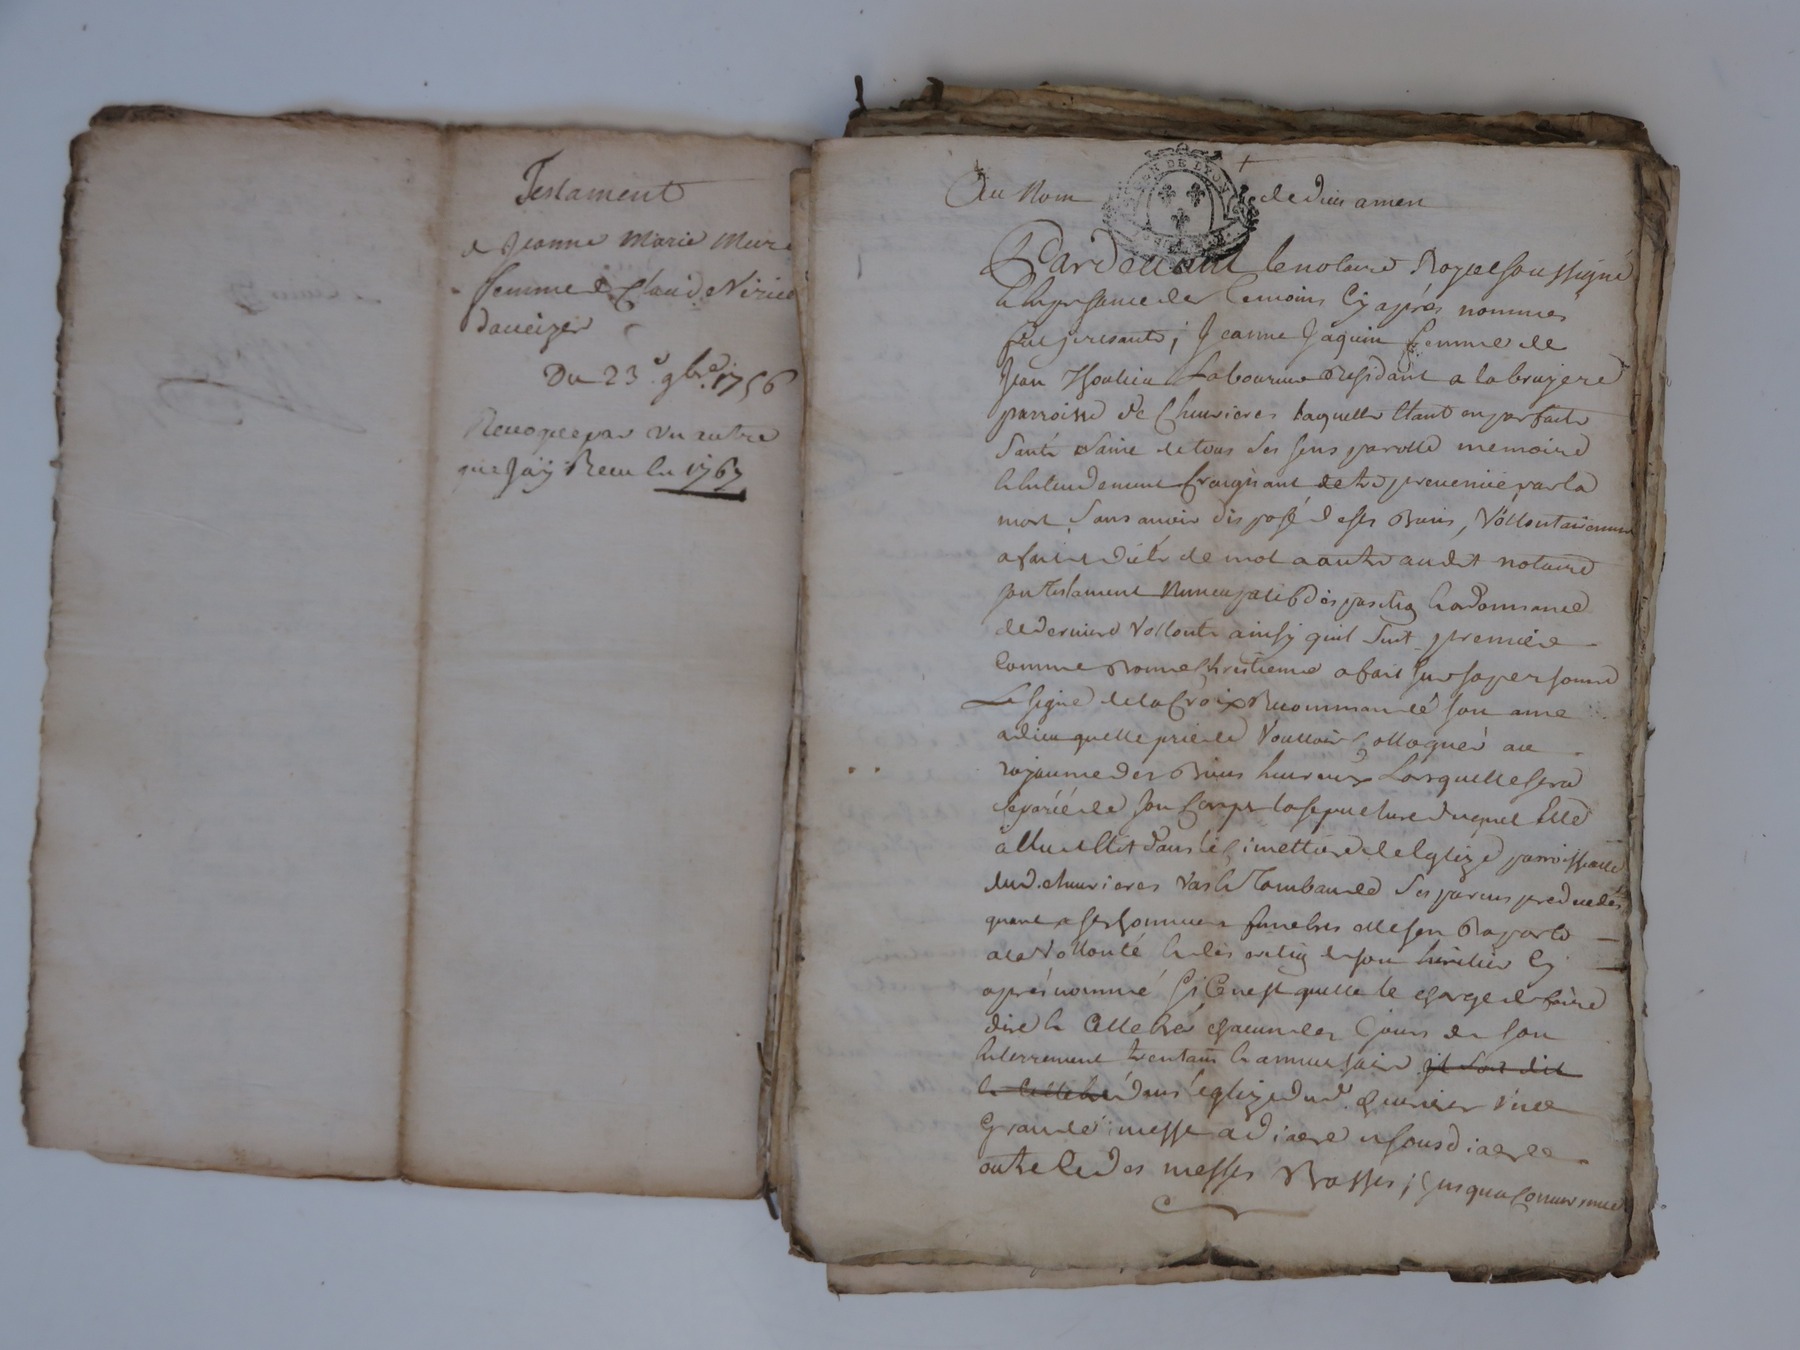 Testament
de Jeanne Marie
femme de Claude
daveizes
Du 23e 9bre 1756
Revoqué par un autre
que Jay Receu en 1767
Au Nom de dieu amen
DE LYON
Pardevant le notaire Royal soussigné
et en presance des temoins cy après nommés
fut presante, Jeanne Jaquin femme de
Jean laboureur Residant a la bruyere
parroisse de Chevrieres laquelle étant en parfaite
santé saine de tous ses sens parolle memoire
et entendement craignant detre prevenüe par la
mort sans avoir disposé de ses Biens, Vollontairement
a fait et dicté de mot a autre audit notaire
son testament Nuncupatif disposition et ordonnance
de derniere Vollonté ainsy quil suit premiere
comme Bonne Chrestienne a fait sur sa personne
Le signe de la Croix Recommandé son ame
a dieu quelle prie de Voulloir Colloquer au
royaume des Biens heureux Lorsquelle sera
separée de son Corps la sepulture duquel Elle
a Elû et Elit dans le Cimettiere de leglize parroissialle
dud. chevrieres Vas et Tombeau de ses parens predecedés
quant a ses honneurs funebres elle sen Raporte
a la Vollonté et discretion de son héritier cy
après nommé si Ce nest quelle le charge de faire
dire et Cellebrer chacun des jours de son
enterrement trentain et anniversaire il soit dit
et cellebré dans léglize dud. chevrieres Une
Grande messe a diacre et sousdiacre
outre le des messes Basses; jusqua Concurance